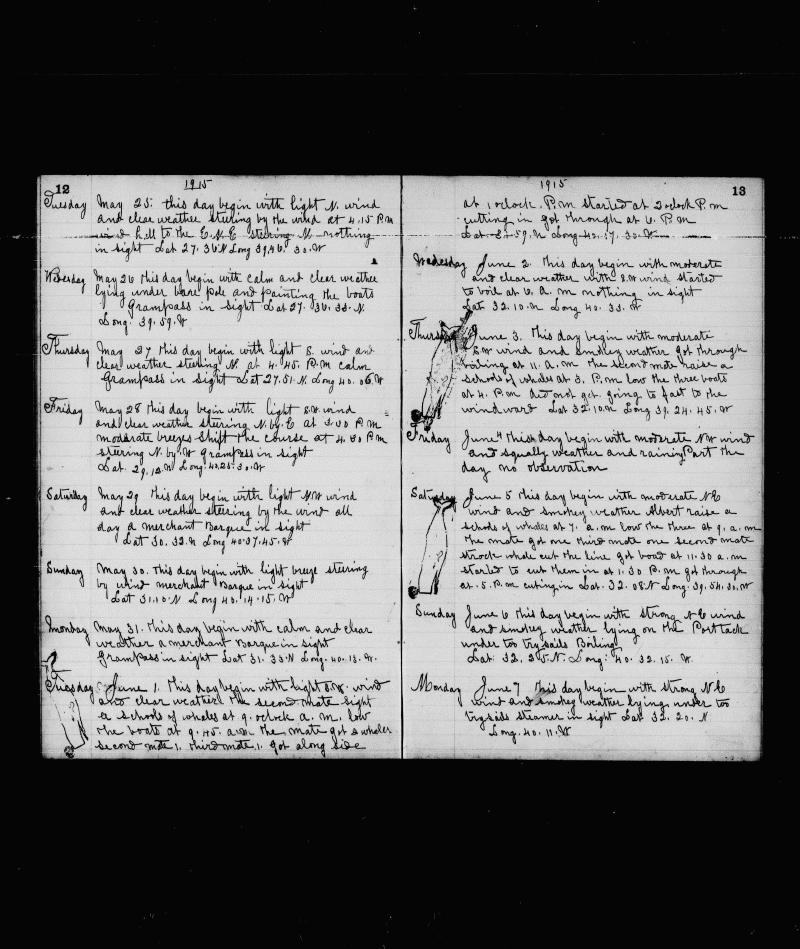 12
1915
Tuesday May 25: this day begin with light N. wind
and clear weather steering by the wind at 4.15 P.M
wind hall to the E.N.E steering N nothing
in sight Lat 27. 36 N Long 39.46. 30. W
Wedesday May 26 this day begin with calm and clear weather
lying under bare Pole and painting the boats
Grampass in sight Lat 27. 36. 33. N.
Long. 39. 59. W
Thursday May 27 this day begin with light S. wind and
clear weather steeling N. at 4. 45. P.M calm
Grampass in sight Lat 27. 51. N. Long 40. 06. W
Friday May 28 this day begin with light S.W. wind
and clear weather steering N. by. E at 3.30 P.M
moderate breezes Shift the course at 4.30 P.M
steering N. by. W Grampass in sight
Lat. 29. 12. N Long. 40.25. 30. W
Saturday May 29 this day begin with light N.W. wind
and clear weather steering by the wind all
day a merchant Barque in sight
Lat 30. 32. N Long 40. 37. 45. W
Sunday May 30. this day begin with light breeze steering
by wind merchant Barque in sight
Lat 31.10. N Long 40. 14. 15. W
Monday May 31. this day begin with calm and clear
weather a merchant Barque in sight
Grampass in sight Lat 31. 33. N Long. 40. 13. W.
Tuesday June 1. this day begin with light S.W. wind
and clear weather the second mate sight
a schools of whales at 9. oclock a. m. low
the boats at 9. 45. a.m the mate got whales
second mate 1. third mate. 1. got along side
1915
13
at 1 oclock. P.m started at 2 oclock P.m
cutting in got through at 6. P.M
Lat 59. N Long 40. 17. 30. W
Wedesday June 2. this day begin with moderate
and clear weather with S.W wind started
to boil at 6. a. m nothing in sight
Lat 32. 10. N Long 40. 33. W
Thursday June 3. this day begin with moderate
S.W wind and smokey weather got through
boiling at 11. a. m the second mate raise a
schools of whales at 3. P.m low the three boats
at 4. P.m did not get. going to fast to the
wind ward Lat 32. 10. N Long 39. 24. 45. W
Friday June 4 this day begin with moderate N.W wind
and squally weather and rainy Part the
day no observation
Saturday June 5 this day begin with moderate N.E
wind and smokey weather Albert raise a
schools of whales at 7. a.m low the three at 9. a. m
the mate got one third mate one second mate
strock whale cut the line got boad at 11.30 a. m
started to cut them in at 1.30 P.m got through
at. 5. P. m cuting in Lat. 32. 08 N Long. 39. 54. 30. W
Sunday June 6 this day begin with strong N.E wind
and smokey weather lying on the Port tack
under too trysails Boiling
Lat. 32. 25. N. Long. 40. 32. 15. W.
Monday June 7 this day begin with strong N.E
wind and smokey weather lying under too
trysails steamer in sight Lat 32. 20. N
Long. 40. 11. W